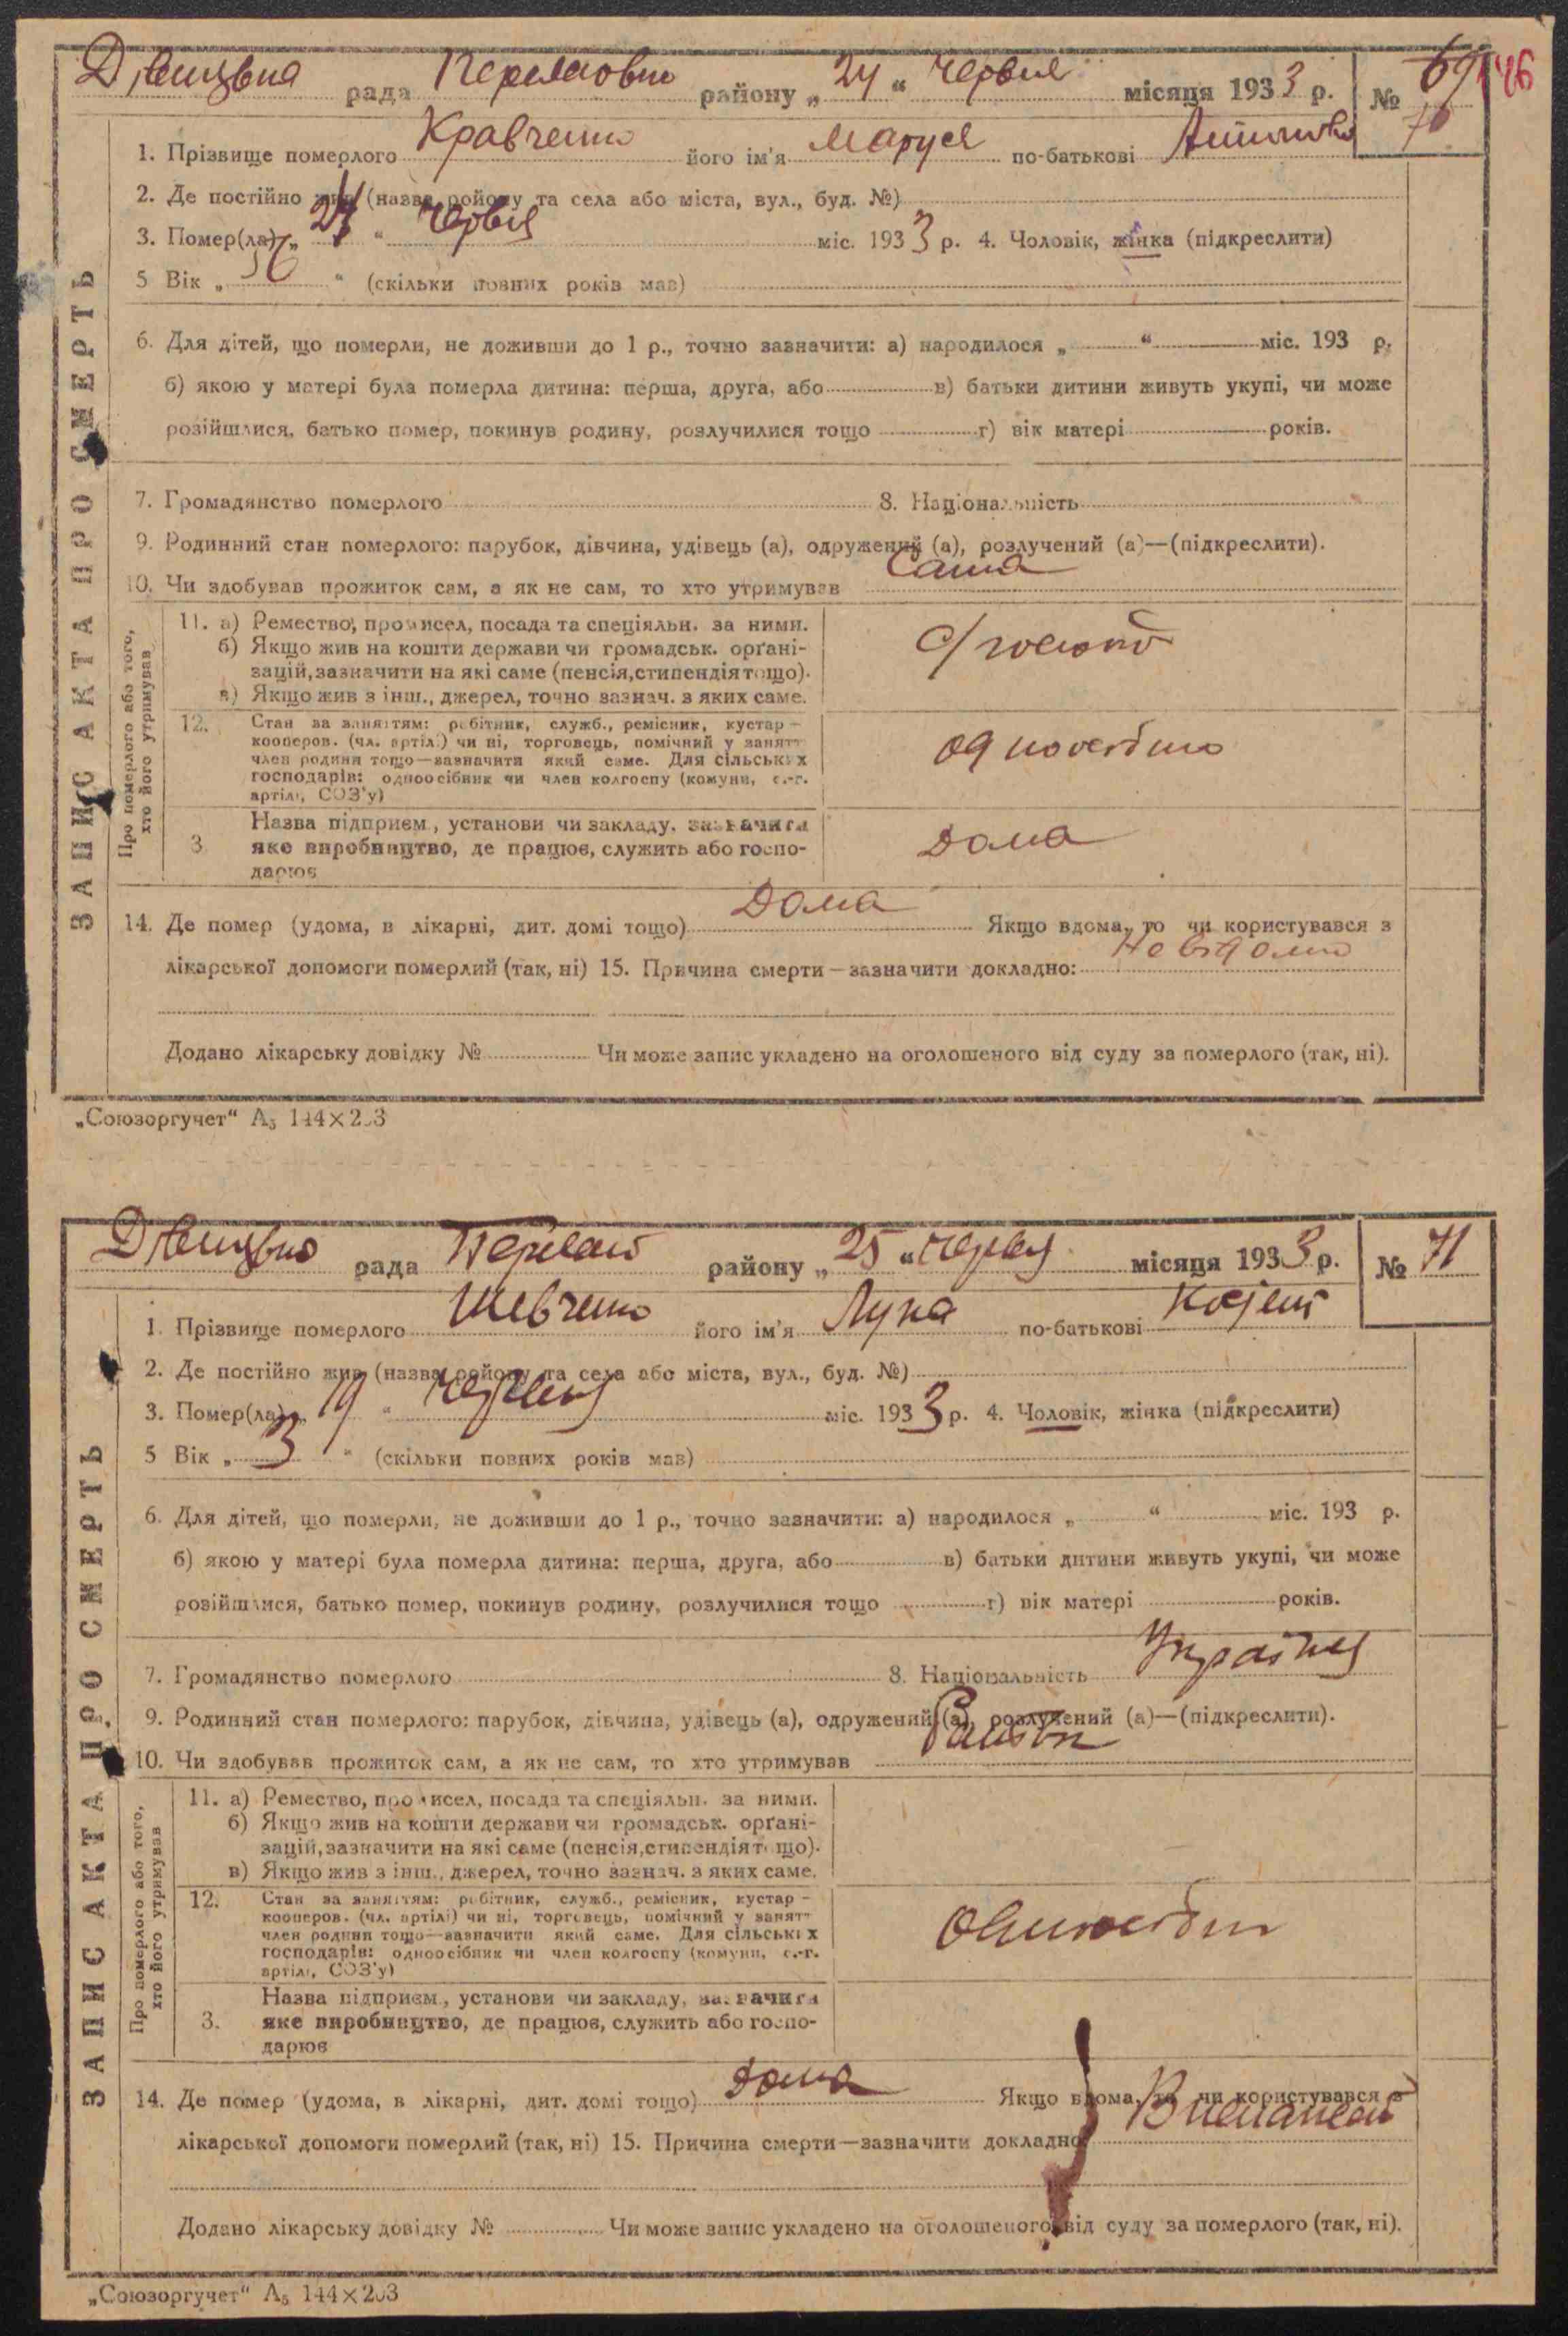 рада району „ 24 “ Червня місяця 1933 р. № 69 76
70
1. Прізвище померлого Кравченко його ім'я Маруся по-батькові
2. Де постійно жив (назва ройону та села або міста, вул., буд. №)
3. Помер(ла) „ 24 “ Червня міс. 1933 р. 4. Чоловік, жінка (підкреслити)
5 Вік „ “ (скільки повних років мав)
6. Для дітей, що померли, не доживши до 1 р., точно зазначити: а) народилося „ “ міс. 193 р.
б) якою у матері була померла дитина: перша, друга, або в) батьки дитини живуть укупі, чи може
розійшлися, батько помер, покинув родину, розлучилися тощо г) вік матері років.
7. Громадянство померлого 8. Національність
9. Родинний стан померлого: парубок, дівчина, удівець (а), одружений (а), розлучений (а)—(підкреслити).
10. Чи здобував прожиток сам, а як не сам, то хто утримував Сама
ЗАПИС АКТА ПРО СМЕРТЬ
Про померлого або того,
хто його утримував
11. а) Ремество, промисел, посада та спеціяльн. за ними.
б) Якщо жив на кошти держави чи громадськ. орґані-
зацій, зазначити на які саме (пенсія, стипендія тощо).
в) Якщо жив з інш., джерел, точно зазнач. з яких саме.
12. Стан за заняттям: робітник, служб., ремісник, кустар –
кооперов. (чл. артілі) чи ні, торговець, помічний у занятт
член родини тощо—зазначити який саме. Для сільських
господарів: одноосібник чи член колгоспу (комуни, с.-г.
артілі, СОЗ'у)
3 Назва підприєм., установи чи закладу, зазначити
яке виробництво, де працює, служить або госпо-
дарює
Дома
14. Де помер (удома, в лікарні, дит. домі тощо) Дома Якщо вдома, то чи користувався з
лікарської допомоги померлий (так, ні) 15. Причина смерти—зазначити докладно: Невідомо
Додано лікарську довідку № Чи може запис укладено на оголошеного від суду за померлого (так, ні).
„Союзоргучет“ А₅ 144×203
рада району „ 25 “ Червня місяця 1933 р. № 71
1. Прізвище померлого Шевченко його ім'я Лука по-батькові
2. Де постійно жив (назва ройону та села або міста, вул., буд. №)
3. Помер(ла) „ 19 “ Червня міс. 1933 р. 4. Чоловік, жінка (підкреслити)
5 Вік „ 3 “ (скільки повних років мав)
6. Для дітей, що померли, не доживши до 1 р., точно зазначити: а) народилося „ “ міс. 193 р.
б) якою у матері була померла дитина: перша, друга, або в) батьки дитини живуть укупі, чи може
розійшлися, батько помер, покинув родину, розлучилися тощо г) вік матері років.
7. Громадянство померлого 8. Національність
9. Родинний стан померлого: парубок, дівчина, удівець (а), одружений (а), розлучений (а)—(підкреслити).
10. Чи здобував прожиток сам, а як не сам, то хто утримував
ЗАПИС АКТА ПРО СМЕРТЬ
Про померлого або того,
хто його утримував
11. а) Ремество, промисел, посада та спеціяльн. за ними.
б) Якщо жив на кошти держави чи громадськ. орґані-
зацій, зазначити на які саме (пенсія, стипендія тощо).
в) Якщо жив з інш., джерел, точно зазнач. з яких саме.
12. Стан за заняттям: робітник, служб., ремісник, кустар –
кооперов. (чл. артілі) чи ні, торговець, помічний у занятт
член родини тощо—зазначити який саме. Для сільських
господарів: одноосібник чи член колгоспу (комуни, с.-г.
артілі, СОЗ'у)
3. Назва підприєм., установи чи закладу, зазначити
яке виробництво, де працює, служить або госпо-
дарює
14. Де помер (удома, в лікарні, дит. домі тощо) Дома Якщо вдома, то чи користувався з
лікарської допомоги померлий (так, ні) 15. Причина смерти—зазначити докладно:
Додано лікарську довідку № Чи може запис укладено на оголошеного від суду за померлого (так, ні).
„Союзоргучет“ А₅ 144×203